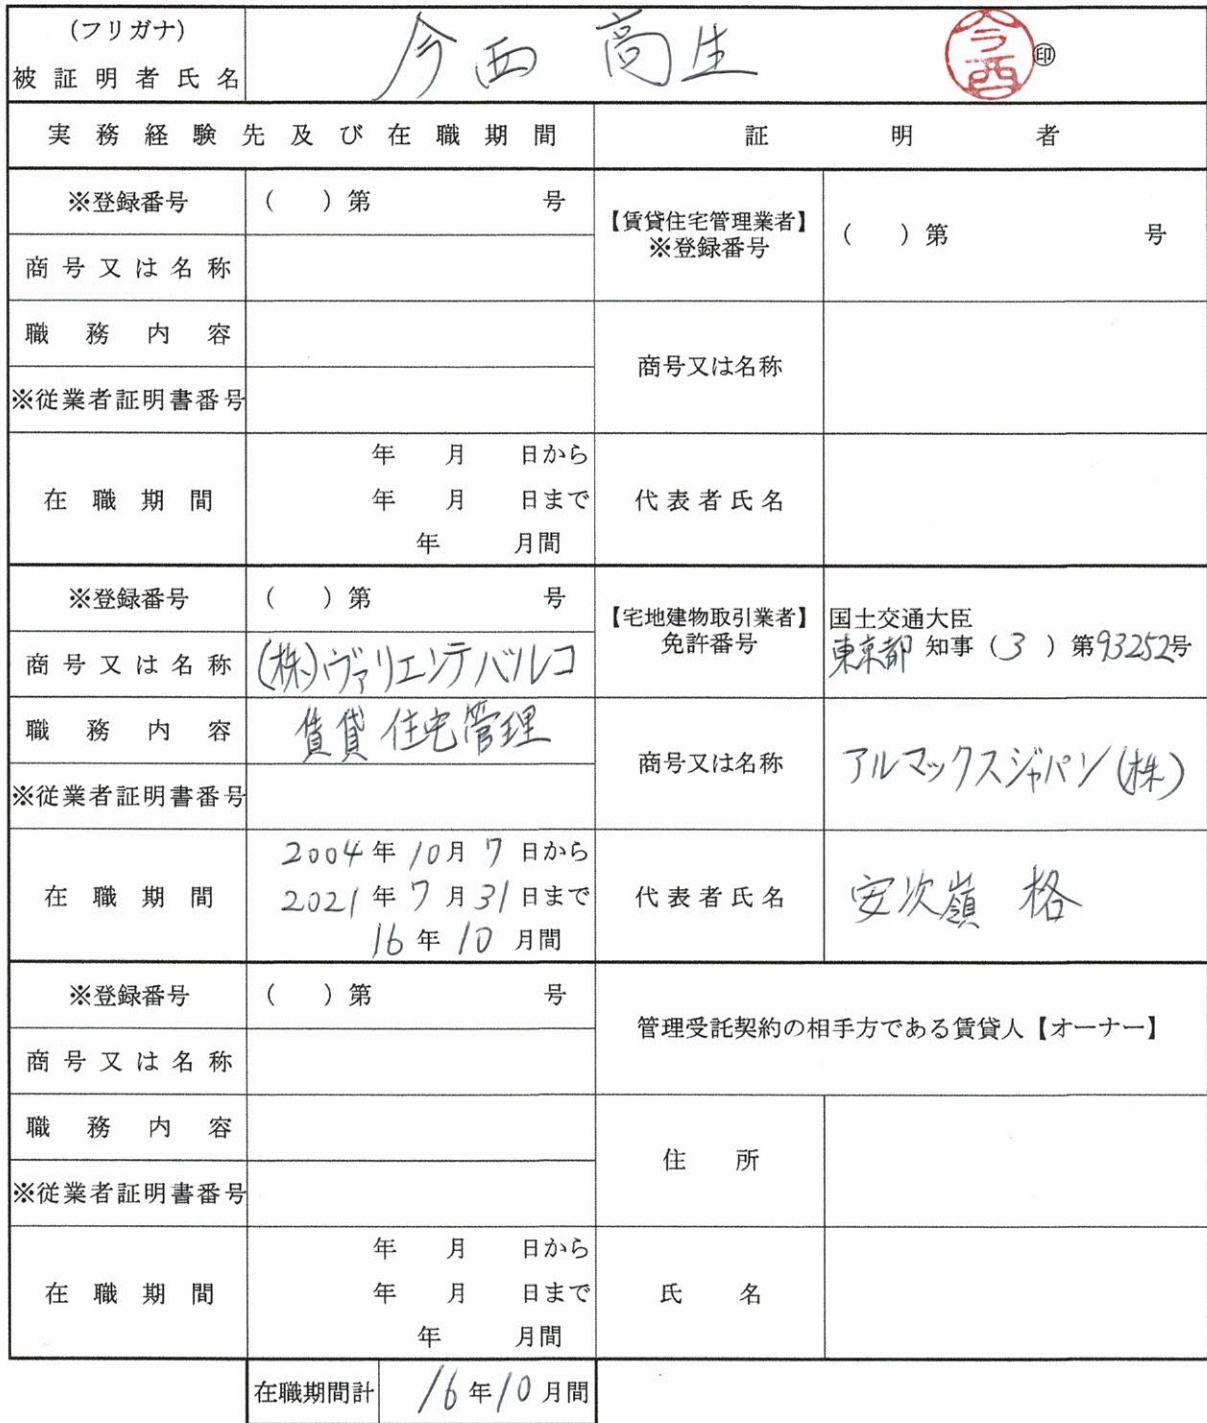 (フリガナ)
被証明者氏名 今西 高生 今西 ㊞
実務経験先及び在職期間 証明者
※登録番号 ( )第 号
【賃貸住宅管理業者】
※登録番号 ( )第 号
商号又は名称
職務内容
商号又は名称
※従業者証明書番号
在職期間
年 月 日から
年 月 日まで
年 月間
代表者氏名
※登録番号 ( )第 号
【宅地建物取引業者】
免許番号
国土交通大臣
東京都 知事 (3) 第93252号
商号又は名称 (株)ヴァリエンテバルコ
職務内容 賃貸住宅管理
商号又は名称 アルマックスジャパン(株)
※従業者証明書番号
在職期間
2004年10月7日から
2021年7月31日まで
16年10月間
代表者氏名 安次嶺 格
※登録番号 ( )第 号
管理受託契約の相手方である賃貸人【オーナー】
商号又は名称
職務内容
住所
※従業者証明書番号
在職期間
年 月 日から
年 月 日まで
年 月間
氏名
在職期間計 16年10月間